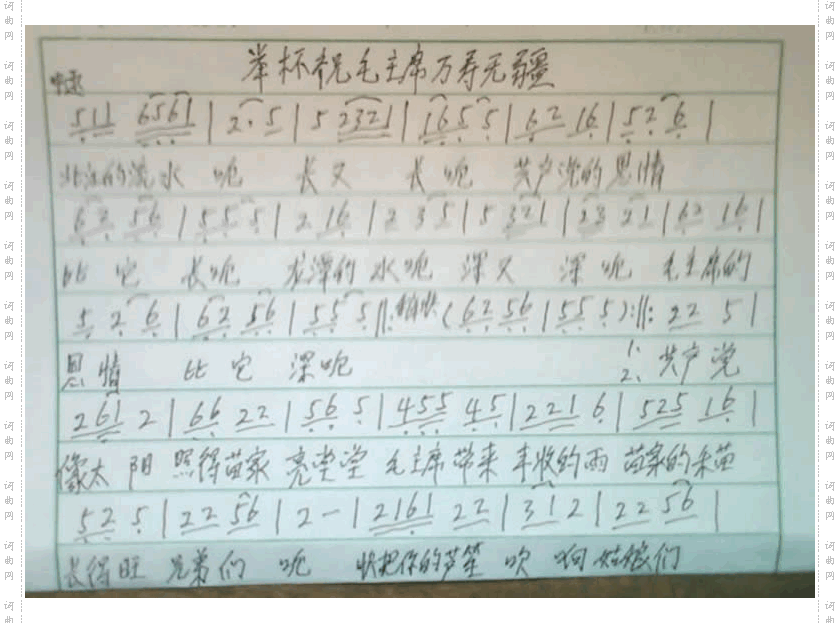 举杯祝毛主席万寿无疆
中速
511 6561 | 2· 5 | 5 2321 | 165 5 | 62 16 | 52 6 |
北江的流水 呃 长又 长呃 共产党的恩情
62 56 | 55 5 | 2 16 | 2 35 | 5 321 | 23 21 | 62 16 |
比它 长呃 龙潭的水呃 深又 深呃 毛主席的
5 2 6 | 62 56 | 55 5 ‖: 稍快 (62 56 | 55 5) :‖: 22 5 |
恩情 比它 深呃 1. 2. 共产党
261 2 | 66 22 | 56 5 | 455 45 | 221 6 | 525 16 |
像太阳 照得苗家 亮堂堂 毛主席带来 丰收的雨 苗家的禾苗
52 5 | 22 56 | 2 - | 2161 22 | 31 2 | 22 56 |
长得旺 兄弟们 呃 快把你的芦笙 吹 啊 姑娘们
词曲网
词曲网
词曲网
词曲网
词曲网
词曲网
词曲网
词曲网
词曲网
词曲网
词曲网
词曲网